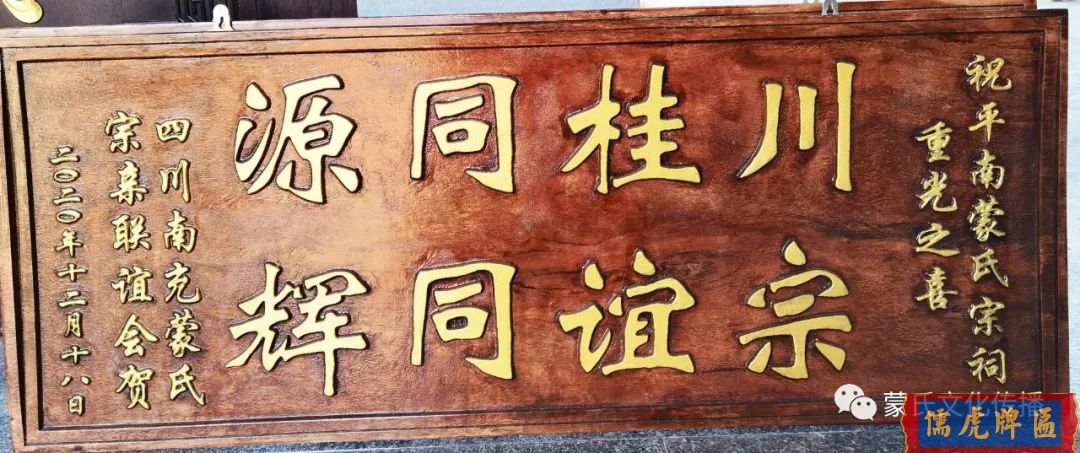 祝平南蒙氏宗祠
重光之喜
川桂同源
宗谊同辉
四川南充蒙氏
宗亲联谊会贺
二〇二〇年十二月十八日
蒙氏文化传播
儒虎牌匾